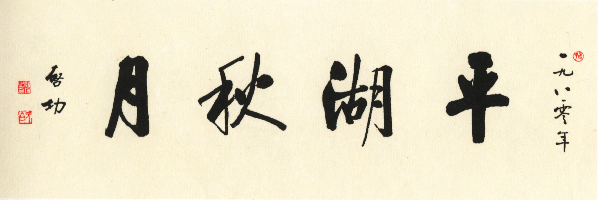 一九八零年
平湖秋月
啓功